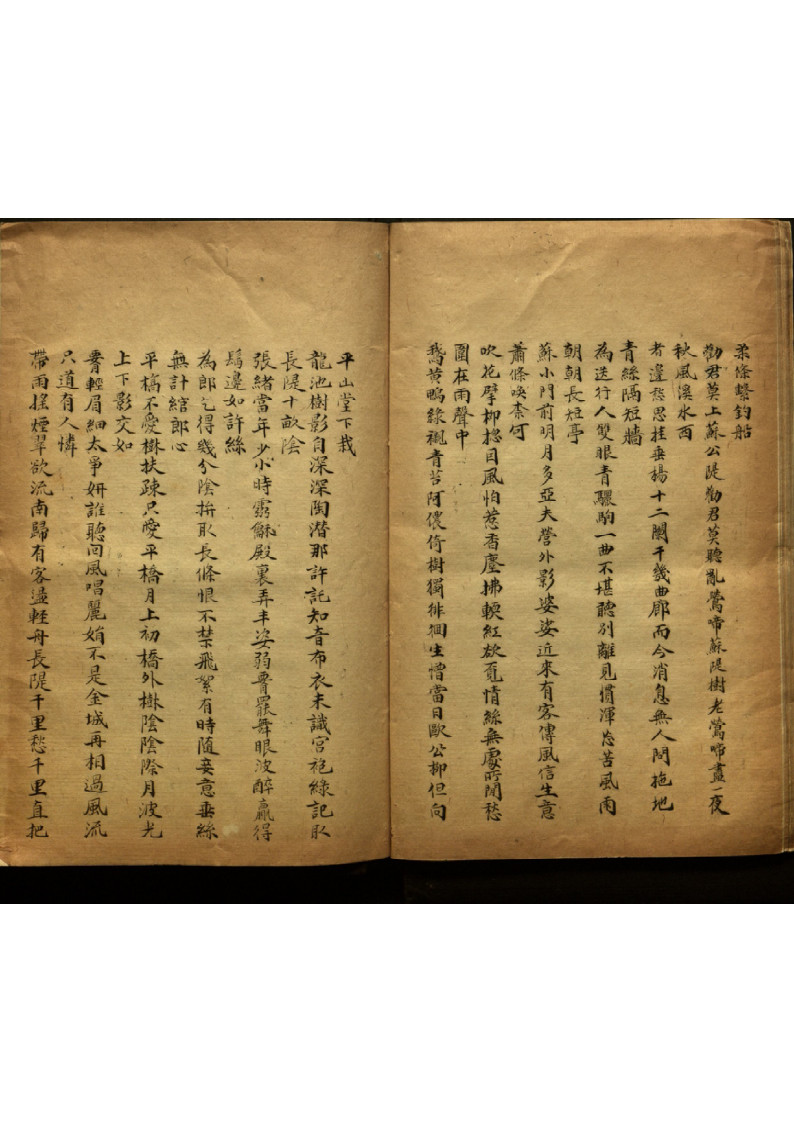 柔條繫釣船
勸君莫上蘇公隄勸君莫聽亂鶯啼蘇隄樹老鶯啼盡一夜
秋風溪水西
者邊愁思挂垂楊十二闌干幾曲廊而今消息無人問拖地
青絲隔短牆
為送行人雙眼青驪駒一曲不堪聽別離見慣渾忘苦風雨
朝朝長短亭
蘇小門前明月多亞夫營外影婆娑近來有客傳風信生意
蕭條喚柰何
吹花擘柳捴因風怕惹香塵拂輭紅欲覔情絲無處所閒愁
圍在雨聲中
鵞黃鴨綠襯青苔阿儂倚樹獨徘徊生憎當日歐公柳但向
平山堂下栽
龍池樹影自深深陶潛那許託知音布衣未識宮袍綠記取
長隄十畝陰
張緒當年少小時靈龢殿裏弄丰姿弱腰罷舞眼波醉贏得
鬅邊如許絲
為郎乞得幾分陰拚取長條恨不禁飛絮有時隨妾意垂絲
無計綰郎心
平橋不愛樹扶疎只愛平橋月上初橋外樹陰陰際月波光
上下影交如
腰輕眉細太爭妍誰聽回風唱麗娟不是金城再相過風流
只道有人憐
帶雨搖煙翠欲流南歸有客盪輕舟長隄千里愁千里直把